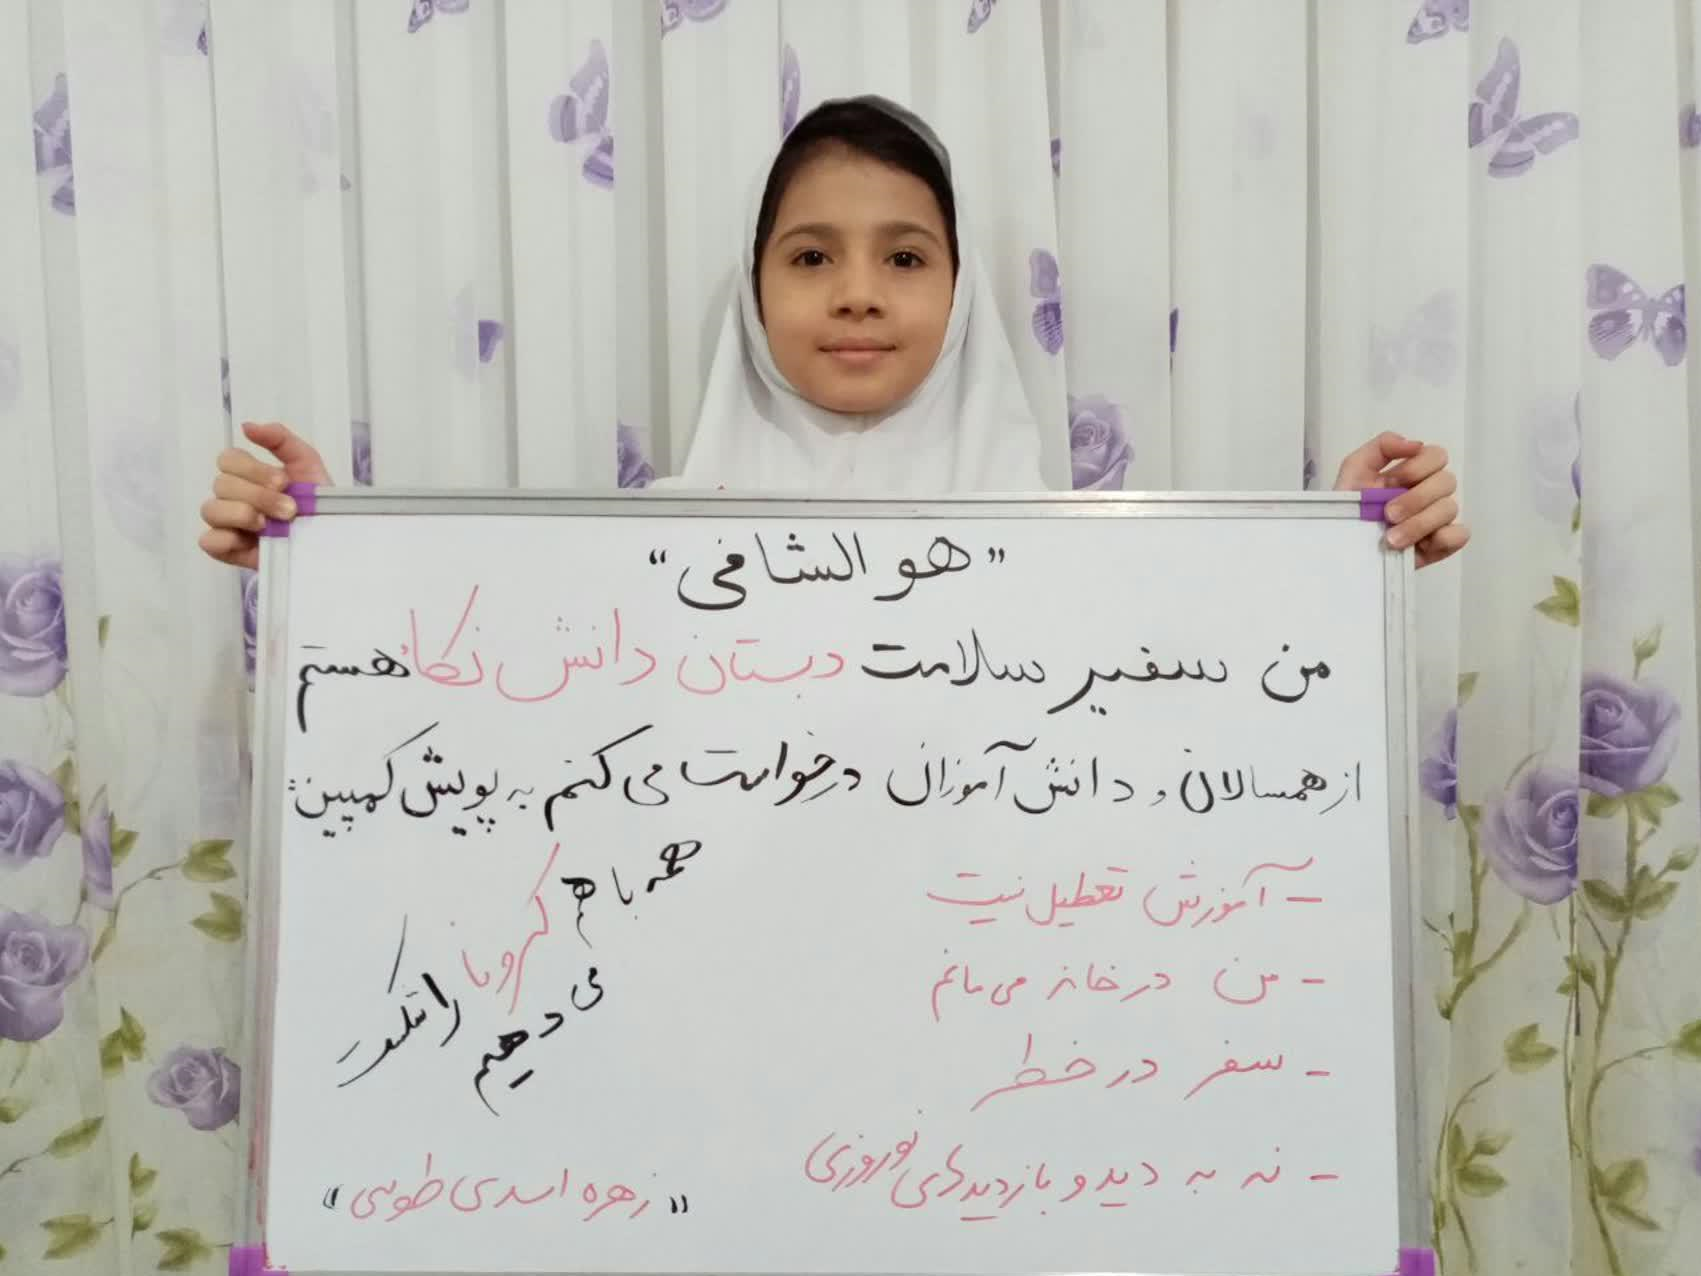 «هو الشافی»
من سفیر سلامت دبستان دانش نکاء هستم
از همسالان و دانش آموزان درخواست می کنم به پویش کمپین:
- آموزش تعطیل نیست
- من در خانه می مانم
- سفر در خطر
- نه به دید و بازدیدهای نوروزی
همه با هم
کرونا
را شکست
می دهیم
«زهره اسدی طوسی»